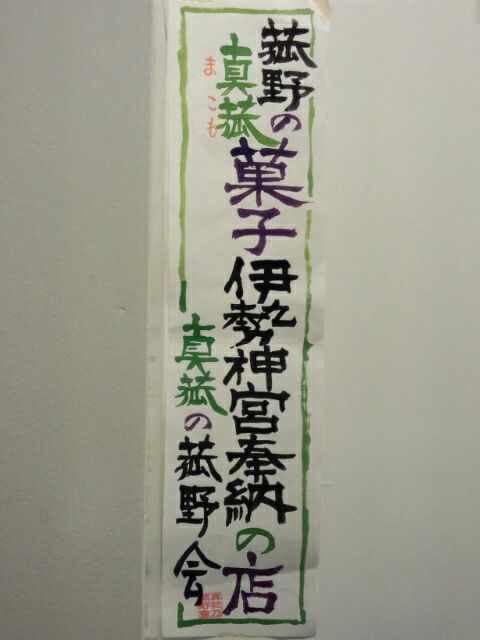 菰野の
真菰
まこも
菓子
伊勢神宮奉納の店
真菰の菰野会